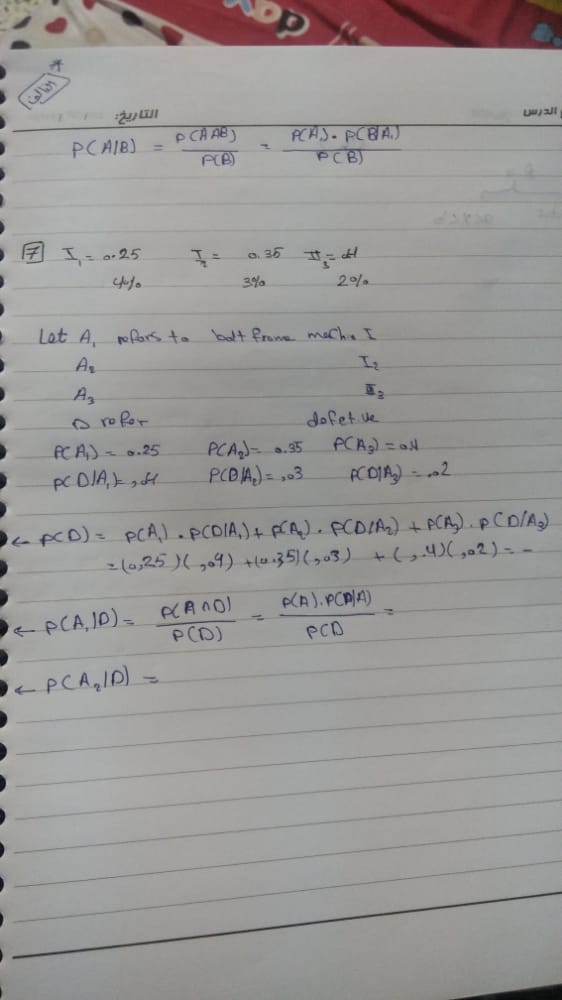 الثالث
التاريخ: الدرس
P(A|B) = P(A∩B) / P(B) = P(A).P(B|A) / P(B)
7 I₁ = 0.25 I₂ = 0.35 II₃ = .4
4% 3% 2%
Let A₁ refers to bolt frome mach. I
A₂ I₂
A₃ II₃
D refer defetive
P(A₁) = 0.25 P(A₂) = 0.35 P(A₃) = 0.4
P(D/A₁) = ,04 P(D/A₂) = ,03 P(D/A₃) = .02
← P(D) = P(A₁) . P(D/A₁) + P(A₂) . P(D/A₂) + P(A₃) . P(D/A₃)
= (0,25)( ,04) + (0.35)( ,03) + ( ,.4)( ,02) = -
← P(A₁/D) = P(A∩D) / P(D) = P(A).P(D/A) / P(D =
← P(A₂/D) =